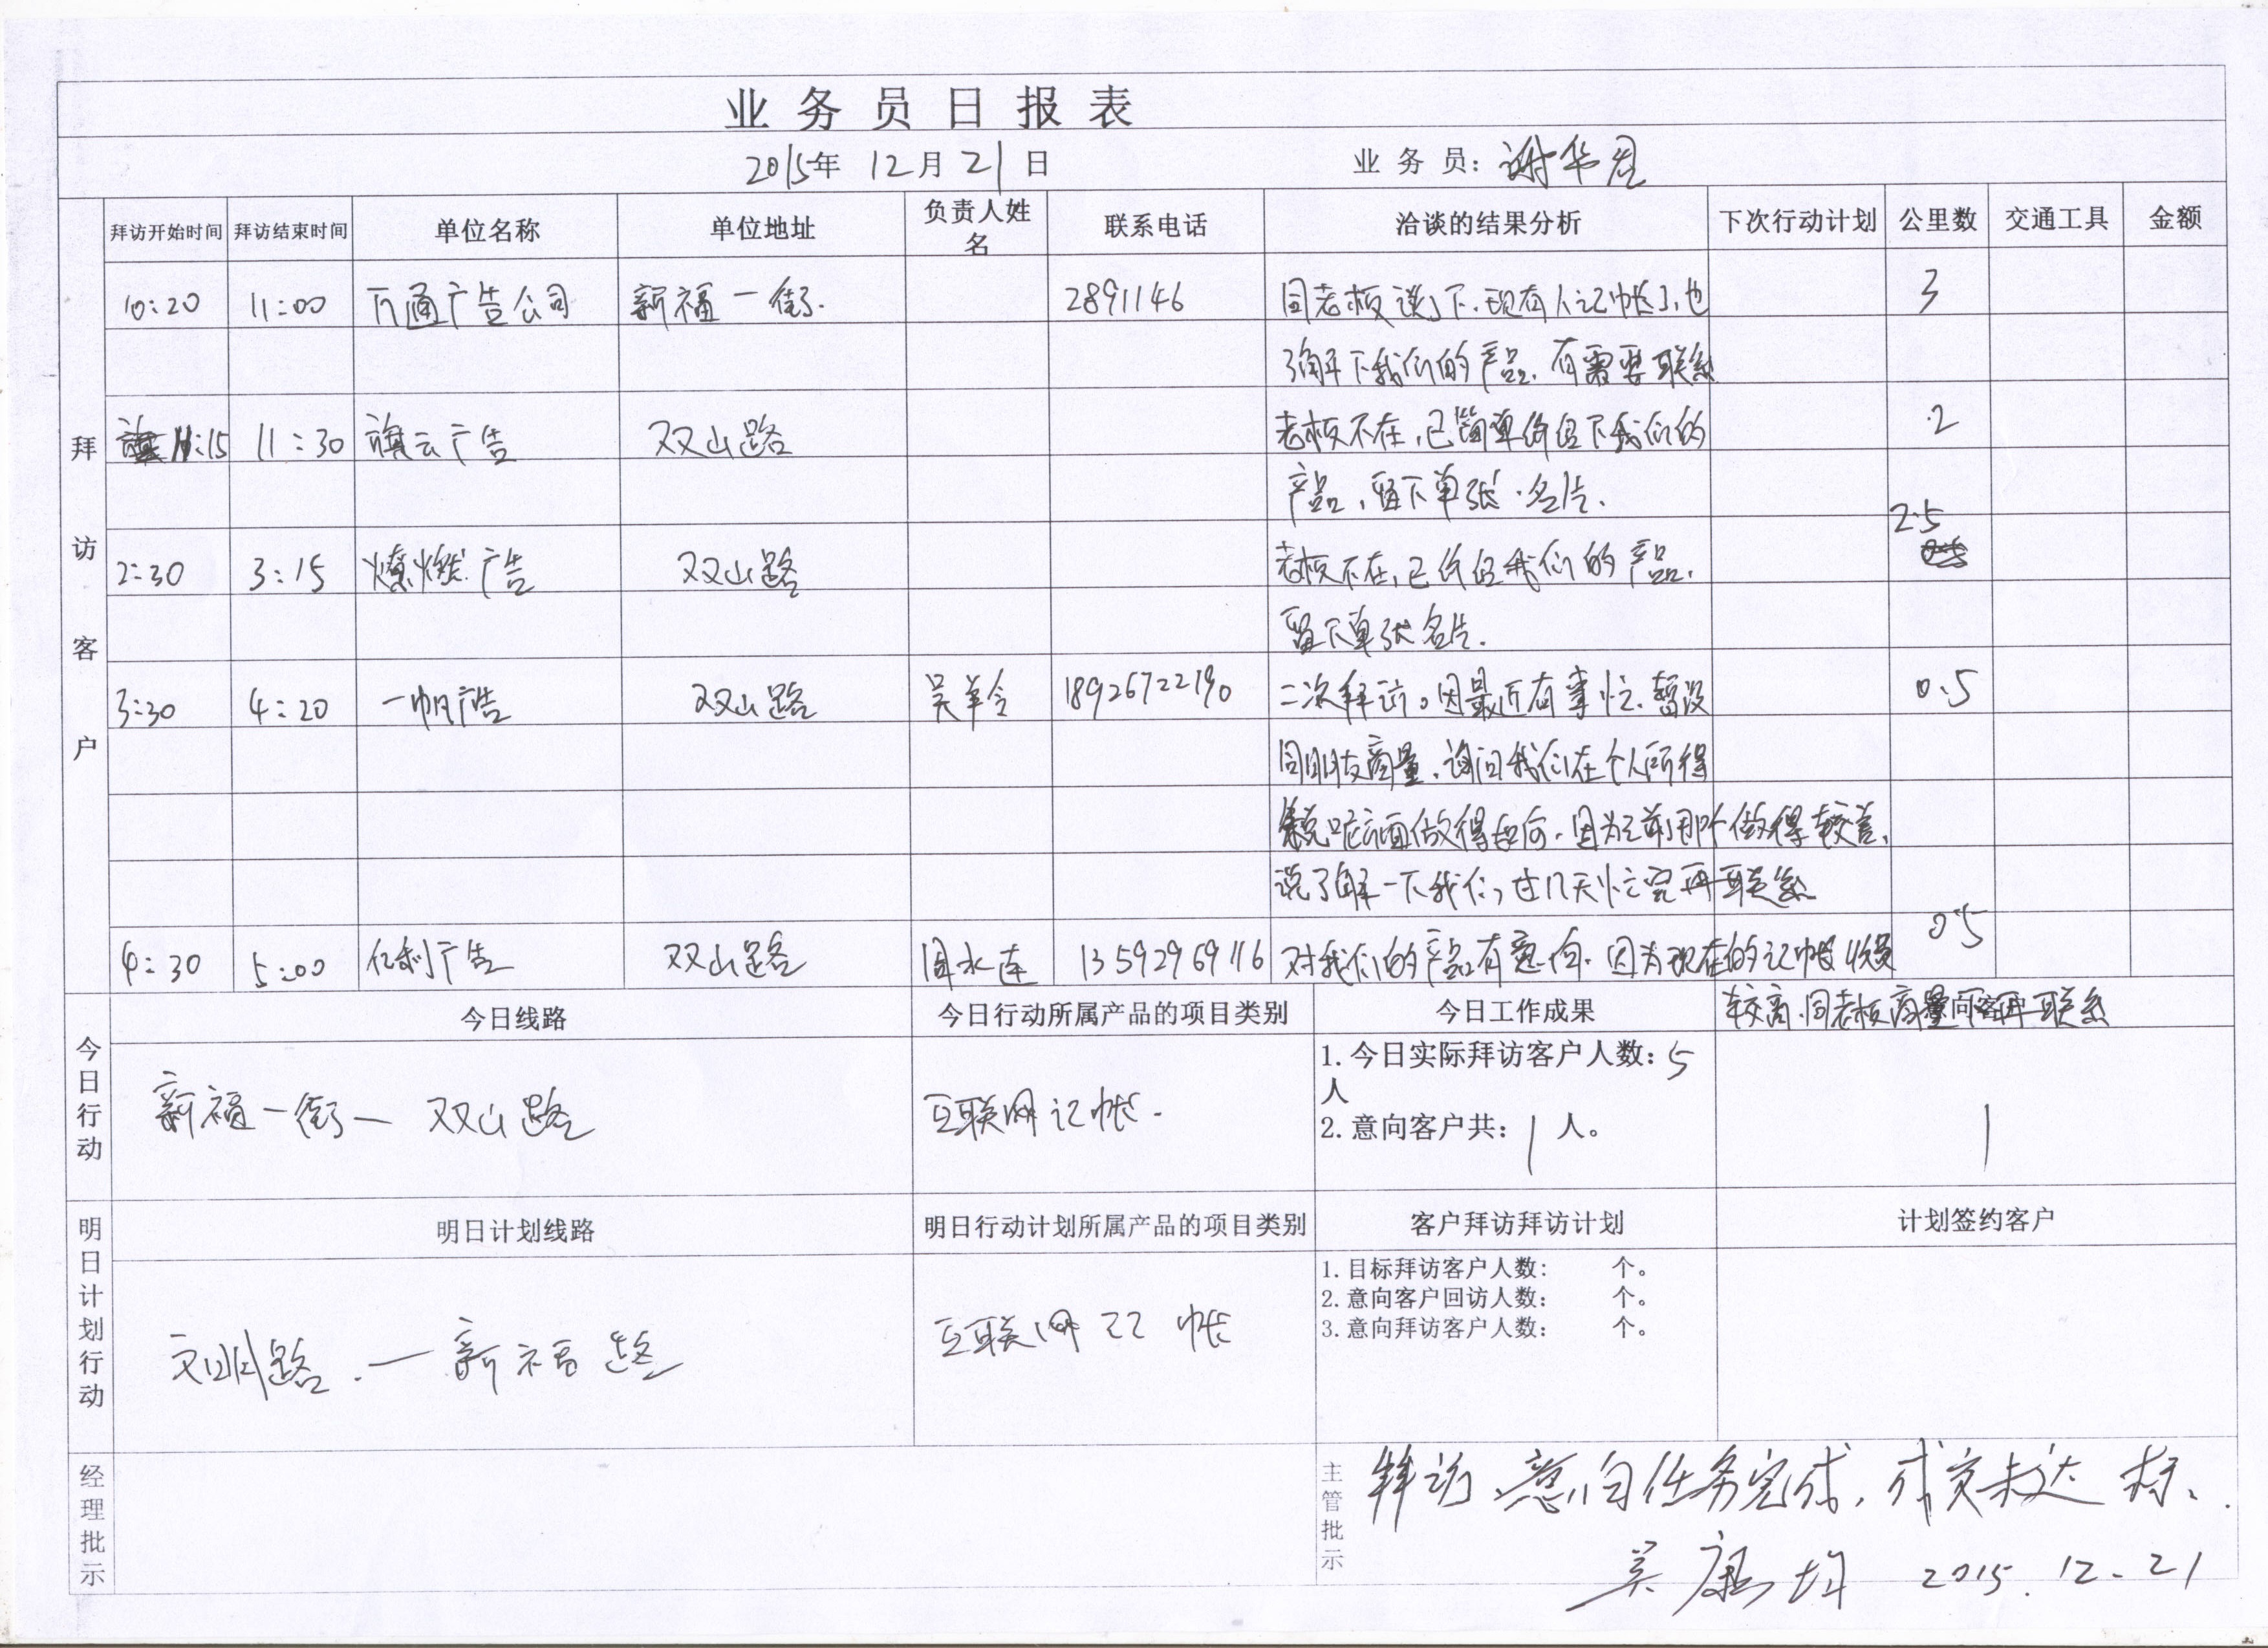 业务员日报表
2015年 12月 21日 业务员: 谢华
拜访客户
拜访开始时间 拜访结束时间 单位名称 单位地址 负责人姓名 联系电话 洽谈的结果分析 下次行动计划 公里数 交通工具 金额
10:20 11:00 通广告公司 新福一街. 2891146 同老板谈了下.现有人记帐了,也 3
了解下我们的产品.有需要联系
11:15 11:30 旗云广告 双山路 老板不在,已简单介绍下我们的 2
产品,留下单张.名片.
2:30 3:15 燎燃广告 双山路 老板不在,已介绍我们的产品. 2.5
留下单张名片.
3:30 4:20 一帆广告 双山路 吴 18926722190 二次拜访。因最近有事忙.暂没 0.5
同朋友商量.询问我们在个人所得
税呢方面做得如何.因为之前用那个做得较差,
说了解一下我们,过几天忙完再联系
4:30 5:00 亿利广告 双山路 周水连 13592969116 对我们的产品有意向.因为现在的记帐收费 0.5
较高.同老板商量下再联系
今日行动
今日线路 今日行动所属产品的项目类别 今日工作成果 意向客户
新福一街一 双山路 互联网记帐. 1.今日实际拜访客户人数: 5
人
2.意向客户共: 1 人。 1
明日计划行动
明日计划线路 明日行动计划所属产品的项目类别 客户拜访拜访计划 计划签约客户
文明路.一新福路 互联网记帐 1.目标拜访客户人数: 个。
2.意向客户回访人数: 个。
3.意向拜访客户人数: 个。
经理批示
主管批示 拜访、意向任务完成,成交未达标、.
吴康 2015.12.21